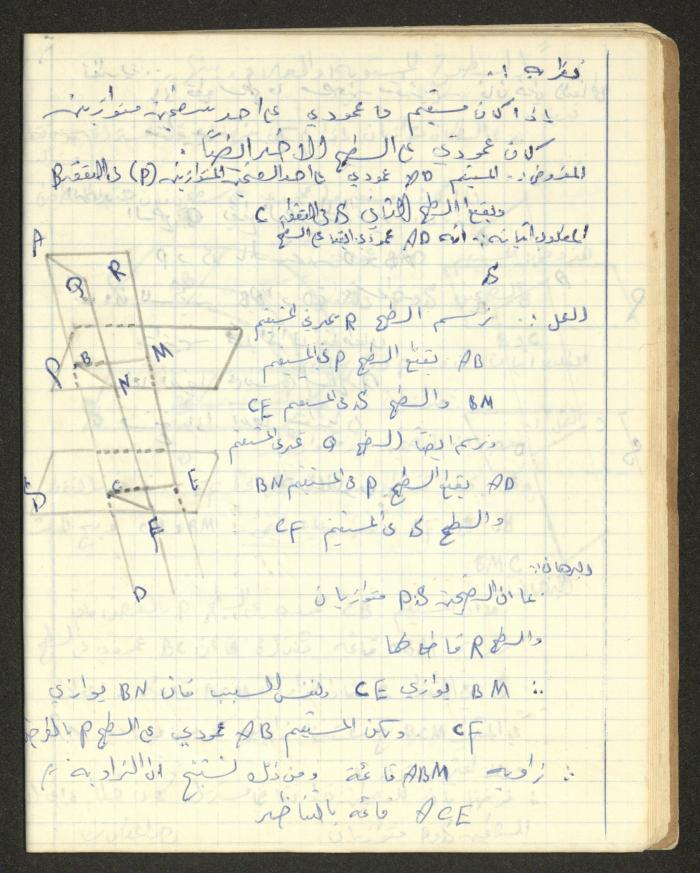 نظرية :
إذا كان مستقيم ما عمودي على احد سطحين متوازيين
كان عمودي على السطح الآخر ايضاً :
المفروض : المستقيم AD عمودي على احد السطحين المتوازيين (P) في النقطة B
ويقطع السطح الثاني S في النقطة C
المطلوب اثباته : انه AD عمودي ايضا على السطح
S
العمل : نرسم السطح R يمر في المستقيم
AB يقطع السطح P في المستقيم
BM والسطح S في المستقيم CE
ونرسم ايضاً السطح Q يمر في المستقيم
AD يقطع السطح P في المستقيم BN
والسطح S في المستقيم CF
البرهان :
بما ان السطحين P,S متوازيان
والسطح R قاطعهما
∴ BM يوازي CE ولنفس السبب فان BN يوازي
CF ولكن المستقيم AB عمودي على السطح P بالفرض
∴ زاوية ABM قائمة ومن ذلك نستنتج ان الزاوية
ACE قائمة بالتناظر
A
R
Q
P
B
M
N
S
C
E
F
D